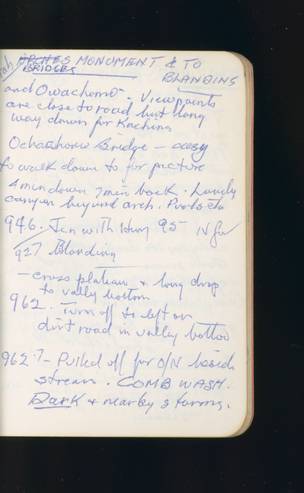 ARCHES MONUMENT & TO
BRIDGES
BLANDING
and Owachomo. Viewpoints
are close to road but long
way down for Kachina
Bridge – easy
to walk down to for picture
4 min down 7 min back. Lovely
canyon beyond arch. Pinb etc
946. Jcn with Hwy 95
927 Blanding
– cross plateau & long drop
to vally bottom
962. Turn off to left on
dirt road in valley bottom
962.7 – Pulled off for O/N beside
stream. COMB WASH.
Dark & nearby s farms.